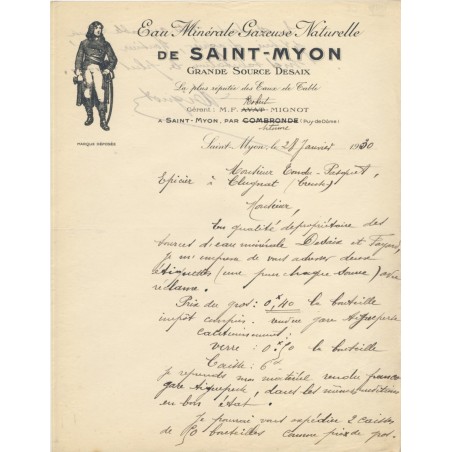 Eau Minérale Gazeuse Naturelle
DE SAINT-MYON
GRANDE SOURCE DESAIX
La plus réputée des Eaux de Table
Robert
Gérant : M. F. AYAT-MIGNOT
A SAINT-MYON, PAR COMBRONDE (Puy-de-Dôme)
MARQUE DÉPOSÉE
Saint-Myon, le 28 Janvier 1930
Monsieur Pasquet,
Epicier à Clugnat (Creuse)
Monsieur,
En qualité de propriétaire des
sources d'eau minérale Desaix et Fayard,
je m'empresse de vous adresser deux
étiquettes (une pour chaque source) avec
réclame.
Prix du gros : 0,40 la bouteille
impôt compris. rendue gare Aigueperse
cautionnement :
verre : 0,50 la bouteille
Caisse : 6
Je reprends mon matériel rendu franco
gare Aigueperse, dans les mêmes conditions
en bon état.
Je pourrai vous expédier 2 caisses
de 50 bouteilles comme prix de gros.